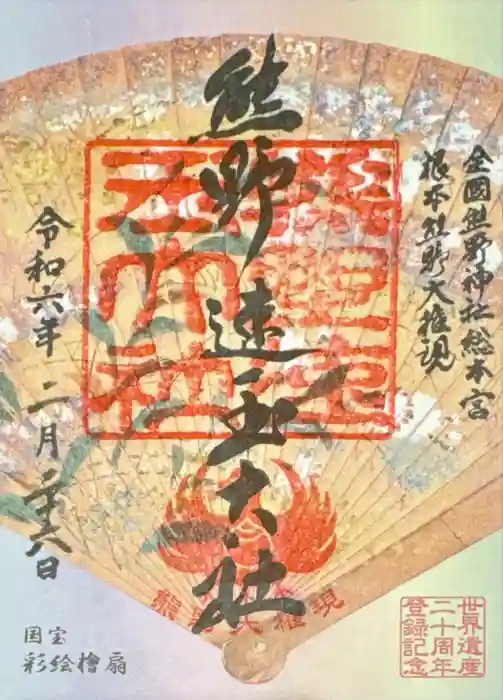 全國熊野神社総本宮
根本熊野大権現
熊野速玉大社
令和六年二月二十六日
熊野大権現
国宝
彩絵檜扇
世界遺産
二十周年
登録記念